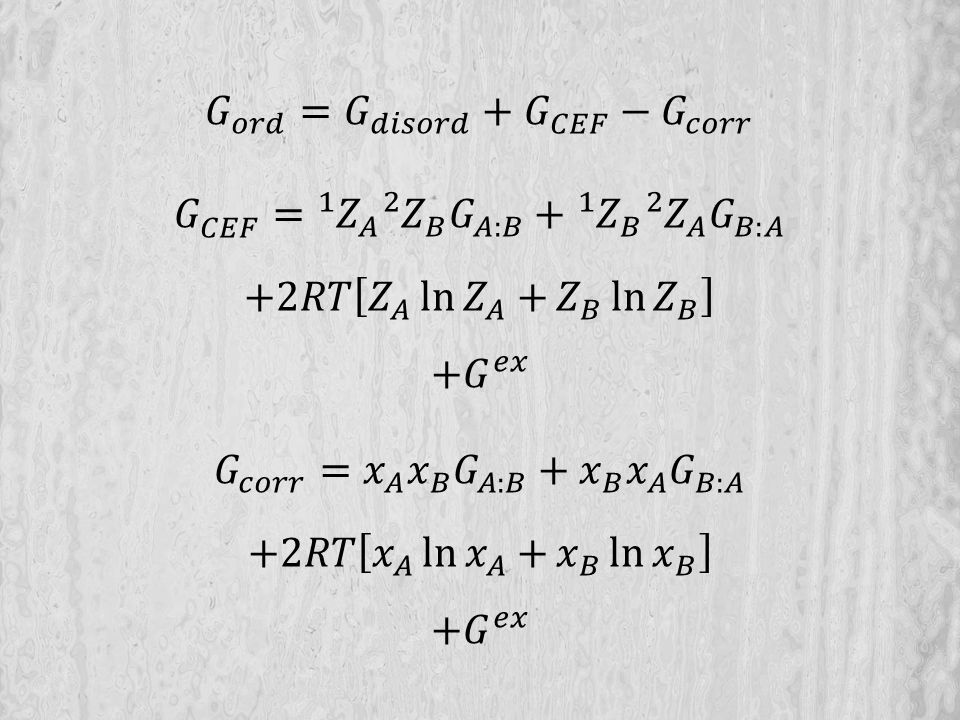 G_{ord} = G_{disord} + G_{CEF} − G_{corr}
G_{CEF} = ^{1}Z_{A} ^{2}Z_{B} G_{A:B} + ^{1}Z_{B} ^{2}Z_{A} G_{B:A}
+2RT[Z_{A} ln Z_{A} + Z_{B} ln Z_{B}]
+G^{ex}
G_{corr} = x_{A} x_{B} G_{A:B} + x_{B} x_{A} G_{B:A}
+2RT[x_{A} ln x_{A} + x_{B} ln x_{B}]
+G^{ex}